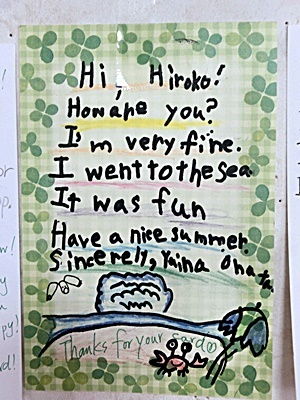 Hi, Hiroko!
How are you?
I'm very fine.
I went to the sea.
It was fun
Have a nice summer.
Sincerely,
Thanks for your card